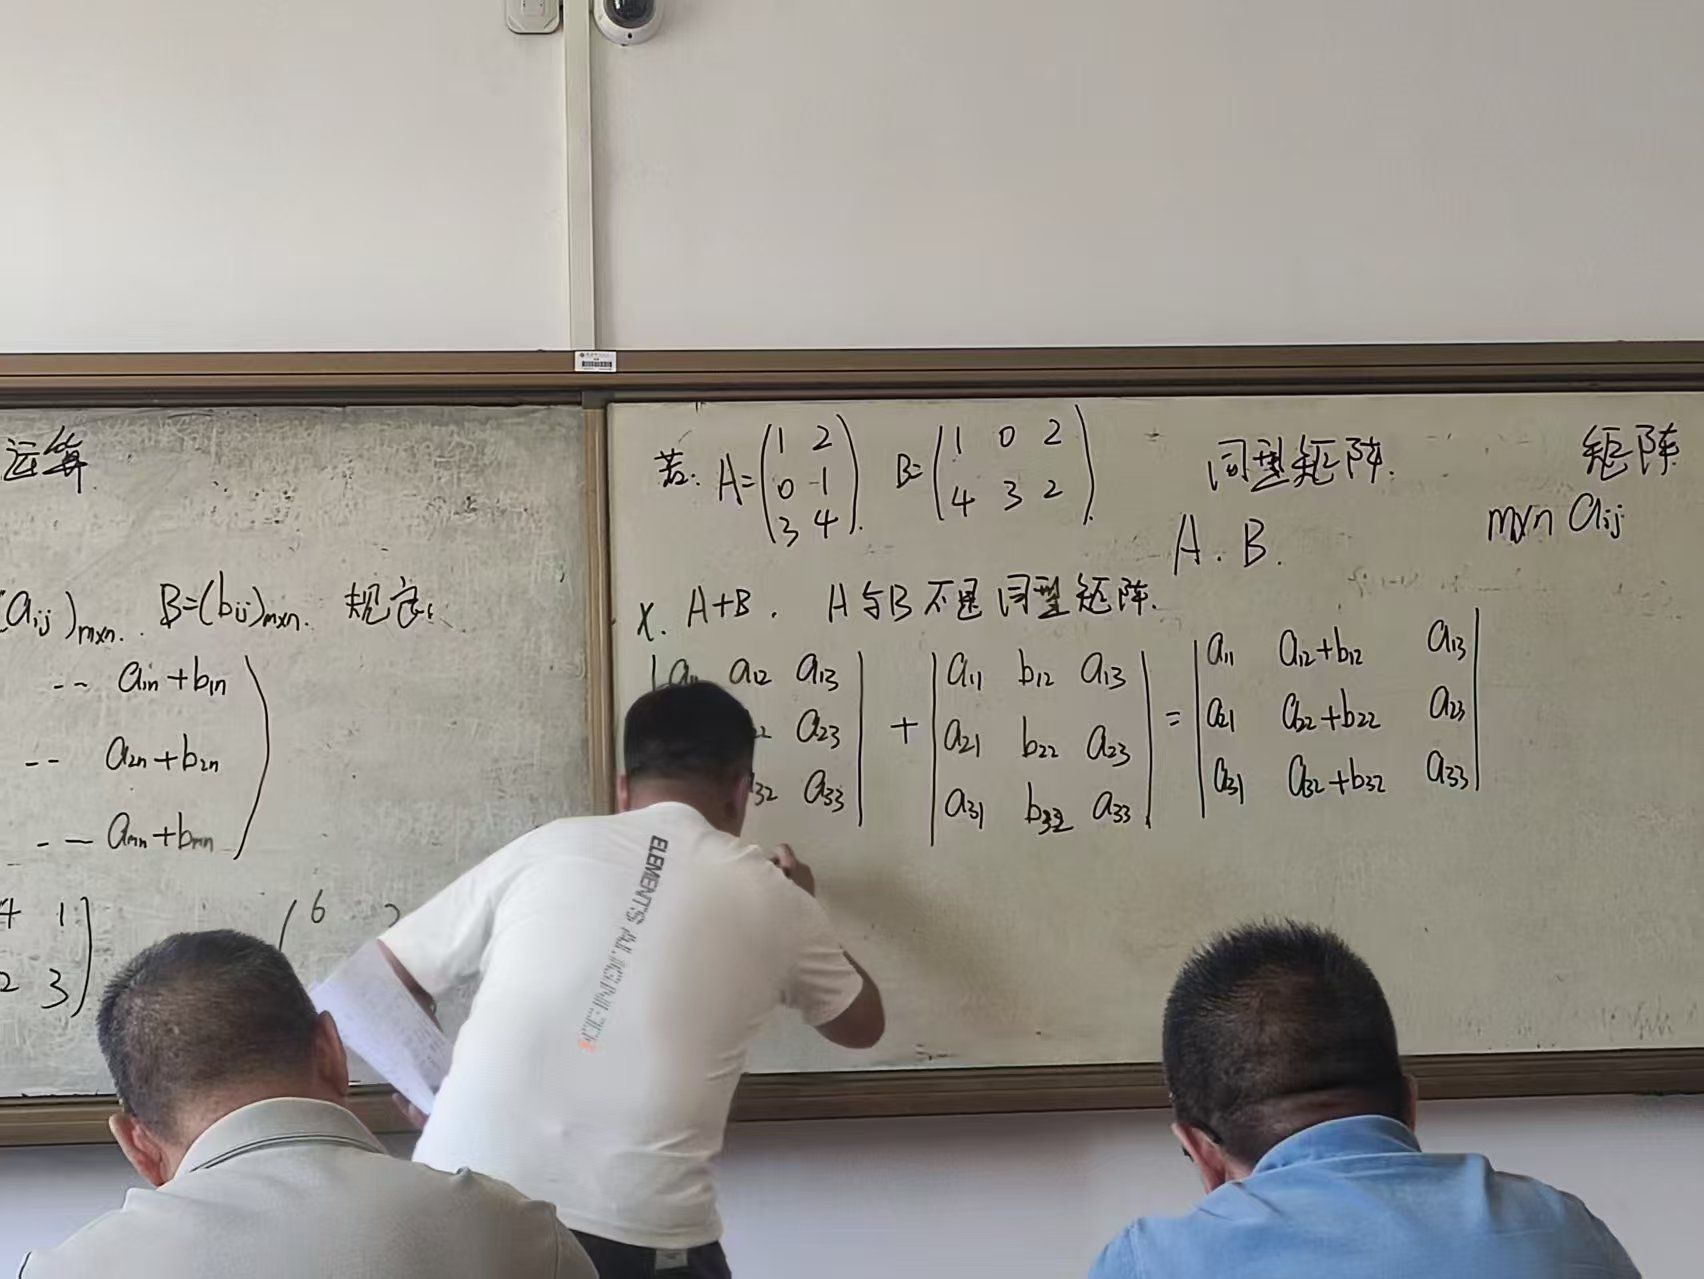 运算
(aij)m×n. B=(bij)m×n. 规定:
-- a1n+b1n
-- a2n+b2n
-- amn+bmn
4 1
2 3
6 2
若: A=(1 2
0 -1
3 4). B=(1 0 2
4 3 2).
同型矩阵.
A. B.
矩阵
m×n aij
X. A+B. A与B不是同型矩阵.
|a11 a12 a13| + |a11 b12 a13| = |a11 a12+b12 a13|
22 a23| |a21 b22 a23| |a21 a22+b22 a23|
32 a33| |a31 b32 a33| |a31 a32+b32 a33|
ELEMENTS